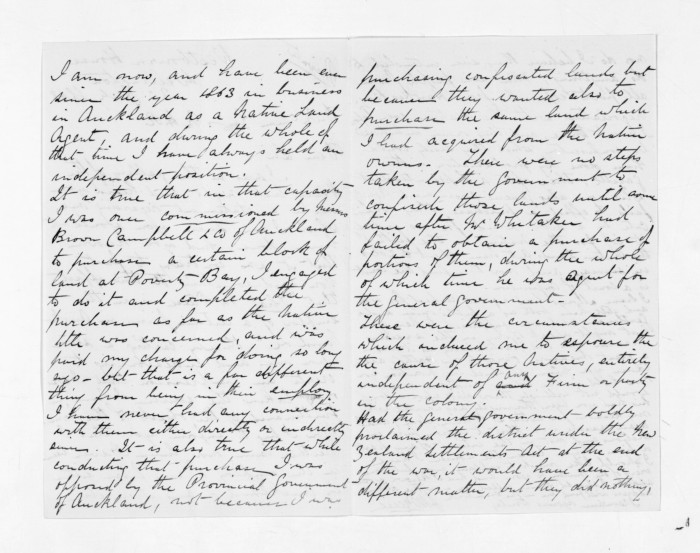 I am now, and have been ever
since the year 1863 in business
in Auckland as a Native Land
Agent, and during the whole of
that time I have always held an
independent position.
It is true that in that capacity
I was once commissioned by Messrs
Brown Campbell & Co of Auckland
to purchase a certain block of
land at Poverty Bay, I engaged
to do it and completed the
purchase as far as the Native
title was concerned, and was
paid my charge for doing so long
ago - but that is a far different
thing from being in their employ
I have never had any connection
with them either directly or indirectly
since. It is also true that while
conducting that purchase I was
opposed by the Provincial Government
of Auckland, not because I was
purchasing confiscated lands but
because they wanted also to
purchase the same land which
I had acquired from the Native
owners. There were no steps
taken by the Government to
confiscate those lands until some
time after Mr Whitaker had
failed to obtain a purchase of
portions of them, during the whole
of which time he was agent for
the General Government -
These were the circumstances
which induced me to espouse the
the cause of those Natives, entirely
independent of any Firm or party
in the colony.
Had the General Government boldly
proclaimed the district under the New
Zealand Settlements Act at the end
of the war, it would have been a
different matter, but they did nothing,